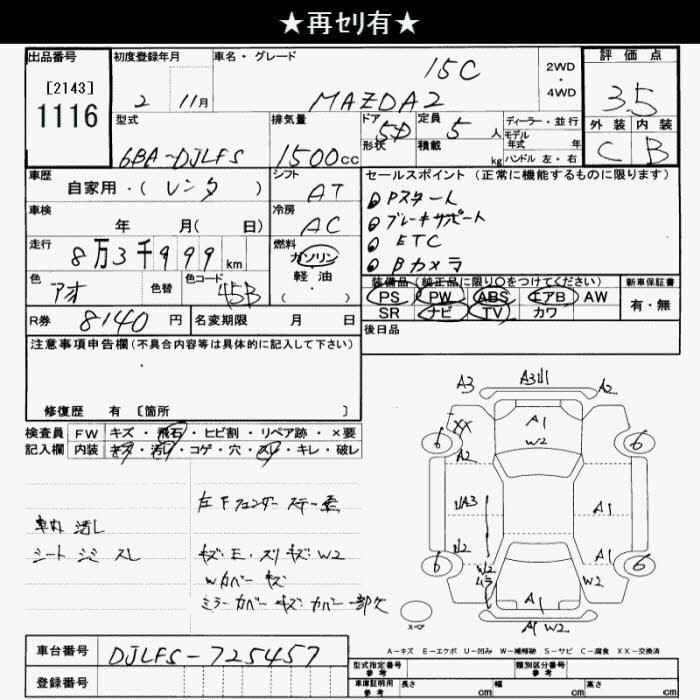 ★再セリ有★
出品番号
[2143]
1116
初度登録年月
2 11月
車名・グレード
15C
MAZDA2
2WD
・
4WD
評価点
3.5
外装 内装
C B
型式
6BA-DJLFS
排気量
1500cc
ドア 5D
形状
定員 5人
積載 kg
ディーラー・並行
モデル
年式 年
ハンドル 左・右
車歴
自家用・( レンタ )
シフト
AT
セールスポイント (正常に機能するものに限ります)
Pスタート
ブレーキサポート
ETC
Bカメラ
車検
年 月( 日)
冷房
AC
走行
8万3千999km
燃料
ガソリン
軽・油
・( )
色
アオ
色替
色コード
45B
装備品 (純正品に限り○をつけてください)
PS PW ABS エアB AW
SR ナビ TV カワ
新車保証書
有・無
R券 8140円
名変期限 月 日
後日品
注意事項申告欄 (不具合内容等は具体的に記入して下さい)
修復歴 有 [箇所 ]
検査員
記入欄
FW キズ・飛石・ヒビ割・リペア跡・×要
内装 キズ・汚レ・コゲ・穴・スレ・キレ・破レ
車内 汚し
シート シミ スレ
左Fフェンダー ステー
キズ・E・スリキズ・W2
Wカバー キズ
ミラーカバー キズ カバー一部欠
A3 A3 A2
XX
A1
W2
6 6
A2
A3
A1
W2
A1
6 6
W2
ムラ
W2
A1
スペア
A1 W2
A-キズ E-エクボ U-凹み W-補修跡 S-サビ C-腐食 XX-交換済
車台番号
DJLFS-725457
登録番号
型式指定番号
参考
類別区分番号
参考
車庫証明用
参考
長さ cm
幅 cm
高さ cm